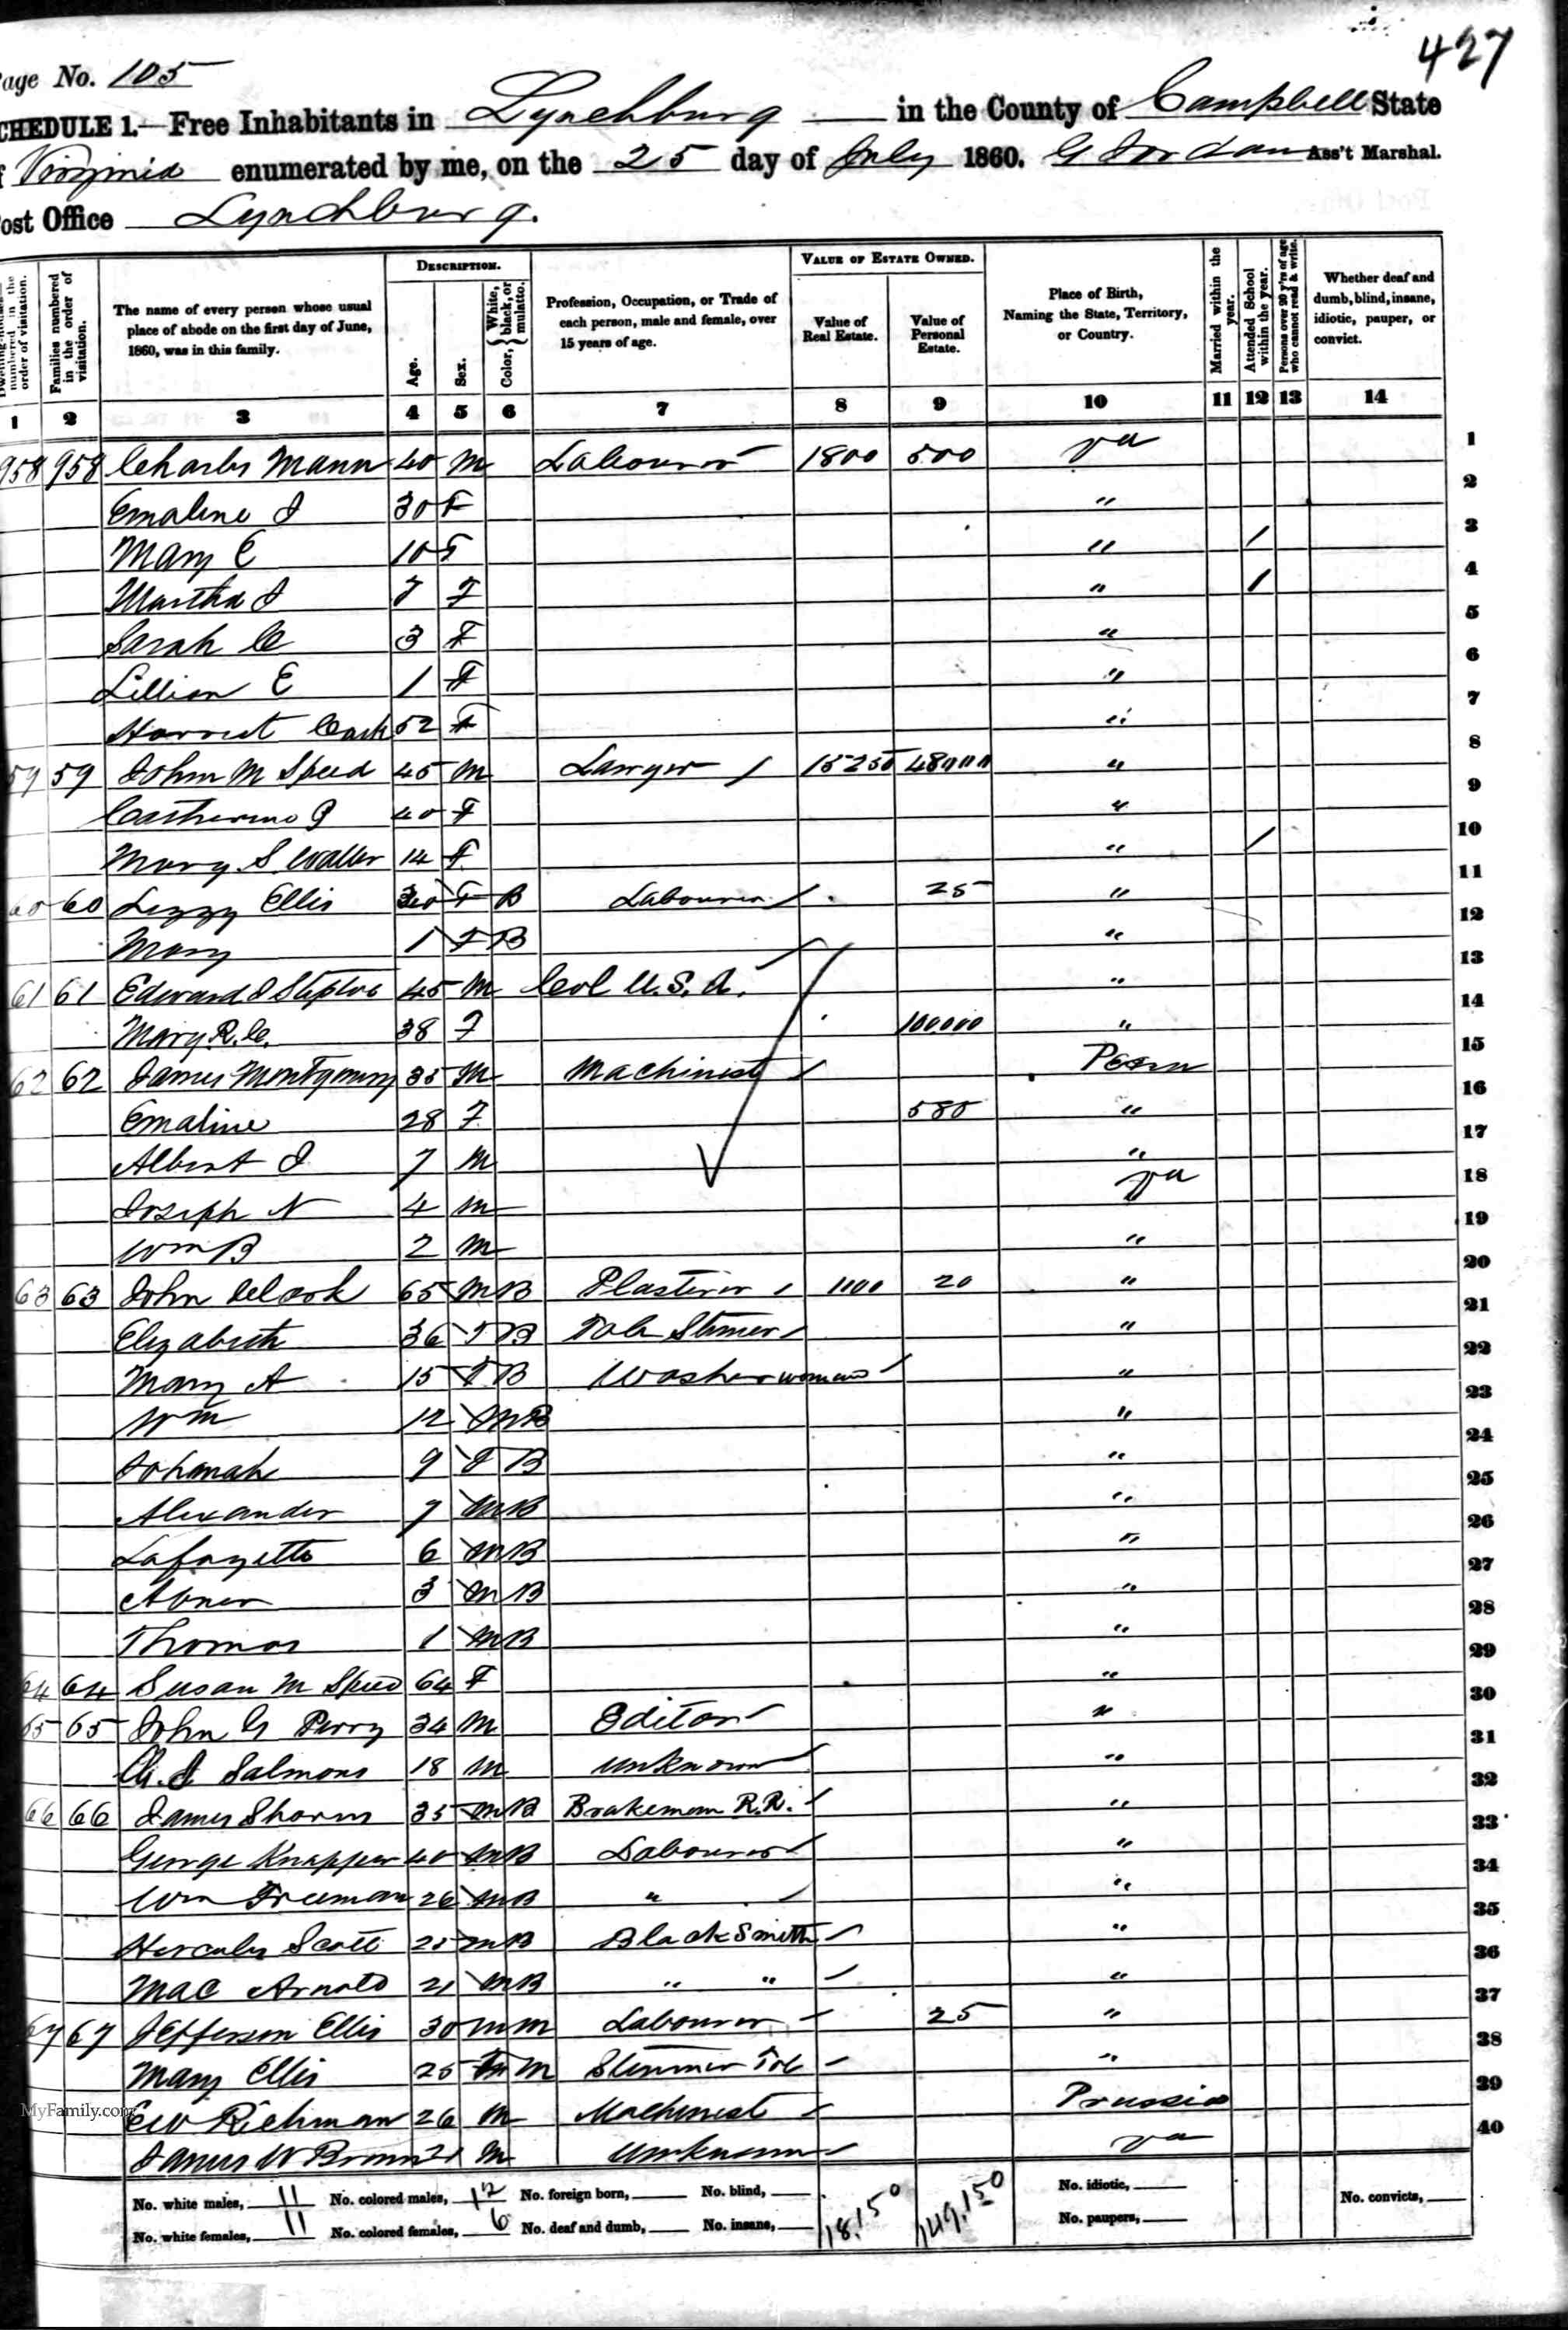 427
age No. 105
CHEDULE 1.—Free Inhabitants in Lynchburg in the County of Campbell State
f Virginia enumerated by me, on the 25 day of July 1860. G Jordan Ass't Marshal.
ost Office Lynchburg.
Dwelling-houses numbered in the order of visitation.
Families numbered in the order of visitation.
The name of every person whose usual place of abode on the first day of June, 1860, was in this family.
DESCRIPTION.
Age.
Sex.
Color, { White, black, or mulatto.
Profession, Occupation, or Trade of each person, male and female, over 15 years of age.
VALUE OF ESTATE OWNED.
Value of Real Estate.
Value of Personal Estate.
Place of Birth, Naming the State, Territory, or Country.
Married within the year.
Attended School within the year.
Persons over 20 y'rs of age who cannot read & write.
Whether deaf and dumb, blind, insane, idiotic, pauper, or convict.
1 2 3 4 5 6 7 8 9 10 11 12 13 14
958 958 Charles Mann 40 M Labourer 1800 500 Va 1
Emaline J 30 F " 2
Mary E 10 F " / 3
Martha J 7 F " / 4
Sarah C 3 F " 5
Lillian E 1 F " 6
Harriet Cash 52 F " 7
59 59 John M Speed 45 M Lawyer / 15250 48000 " 8
Catherine 40 F " 9
Mary S. Waller 14 F " / 10
60 60 Lizzy Ellis F B Labourer / 25 " 11
Mary 1 F B " 12
61 61 Edward J Steptoe 45 M Col U.S.A. " 13
Mary R. C. 38 F 100000 " 14
62 62 James Montgomery 35 M Machinest / Penn 15
Emaline 28 F " 16
Albert J 7 M " 17
Joseph N 4 M Va 18
Wm B 2 M " 19
63 63 John 65 M B Plasterer / 1100 20 " 20
Elizabeth 36 F B Tob Stemer / " 21
Mary A 15 F B Washerwoman / " 22
Wm 12 M B " 23
Johanah 9 F B " 24
Alexander 7 M B " 25
Lafayette 6 M B " 26
Abner 3 M B " 27
Thomas 1 M B " 28
64 64 Susan M Speed 64 F " 29
65 65 John G Perry 34 M Editor " 30
Salmons 18 M unknown " 31
66 66 James 35 M B Brakeman R.R. / " 32
George Knapper 40 M B Labourer / " 33
Wm Freeman 26 M B " / " 34
Hercules Scott M B BlackSmith / " 35
Mac Arnold 21 M B " " / " 36
67 67 Jefferson Ellis 30 M M Labourer / 25 " 37
Mary Ellis 25 F M Stemmer Tob / " 38
Richman 26 M Machenest / Prussia 39
James W Brown 21 M unknown / Va 40
No. white males, 11 No. colored males, 12 No. foreign born, No. blind, No. idiotic,
No. white females, 11 No. colored females, 6 No. deaf and dumb, No. insane, 18,150 149,150 No. paupers, No. convicts,
MyFamily.com